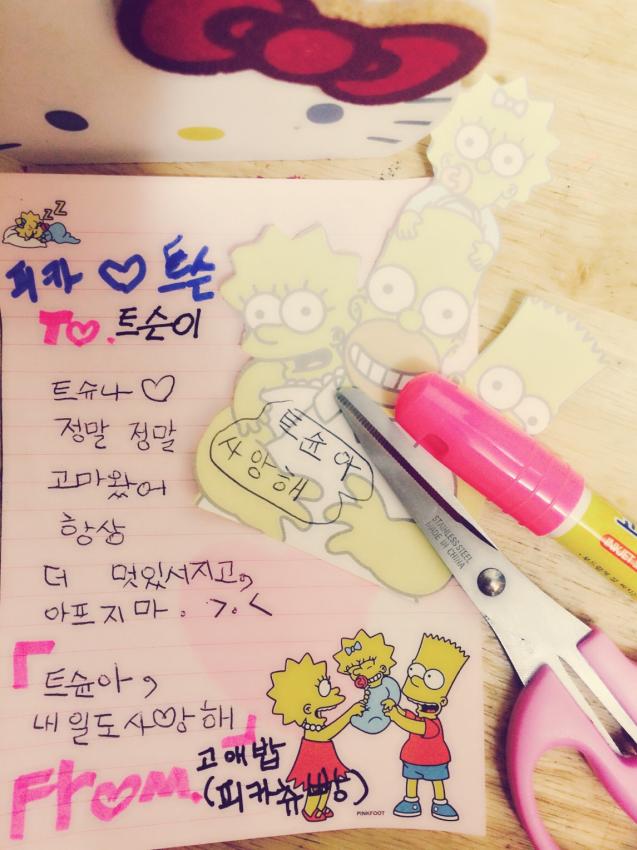 ZZ
피카 ♡ 트슌
To. 트슌이
트슈나 ♡
정말 정말
고마왔어
항상
더 멋있서지고,
아프지마. >.<
「트슌아,
내일도사랑해」
From. 고애밥
(피카츄빵)
트슌아
사앙해
STAINLESS STEEL
MADE IN CHINA
PINKFOOT